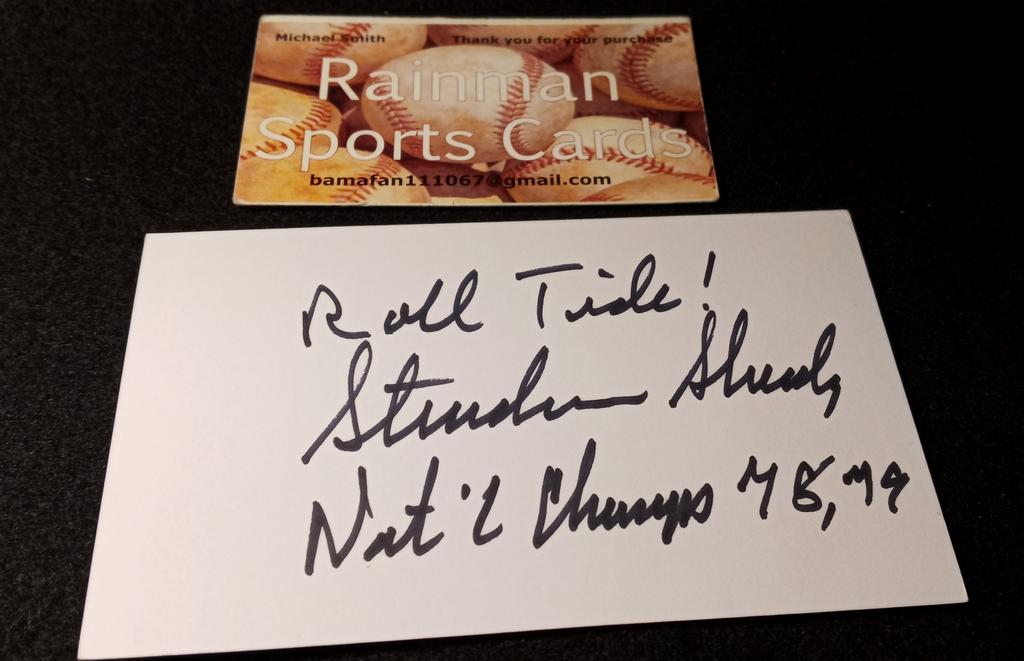 Michael Smith Thank you for your purchase
Rainman
Sports Cards
bamafan111067@gmail.com
Roll Tide!
Steadman Shealy
Nat'l Champs 78, 79